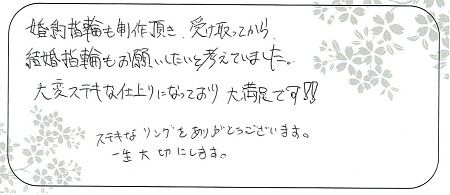 婚約指輪も制作頂き、受け取ってから、
結婚指輪もお願いしたいと考えていました。
大変ステキな仕上りになっており大満足です!!
ステキなリングをありがとうございます。
一生大切にします。